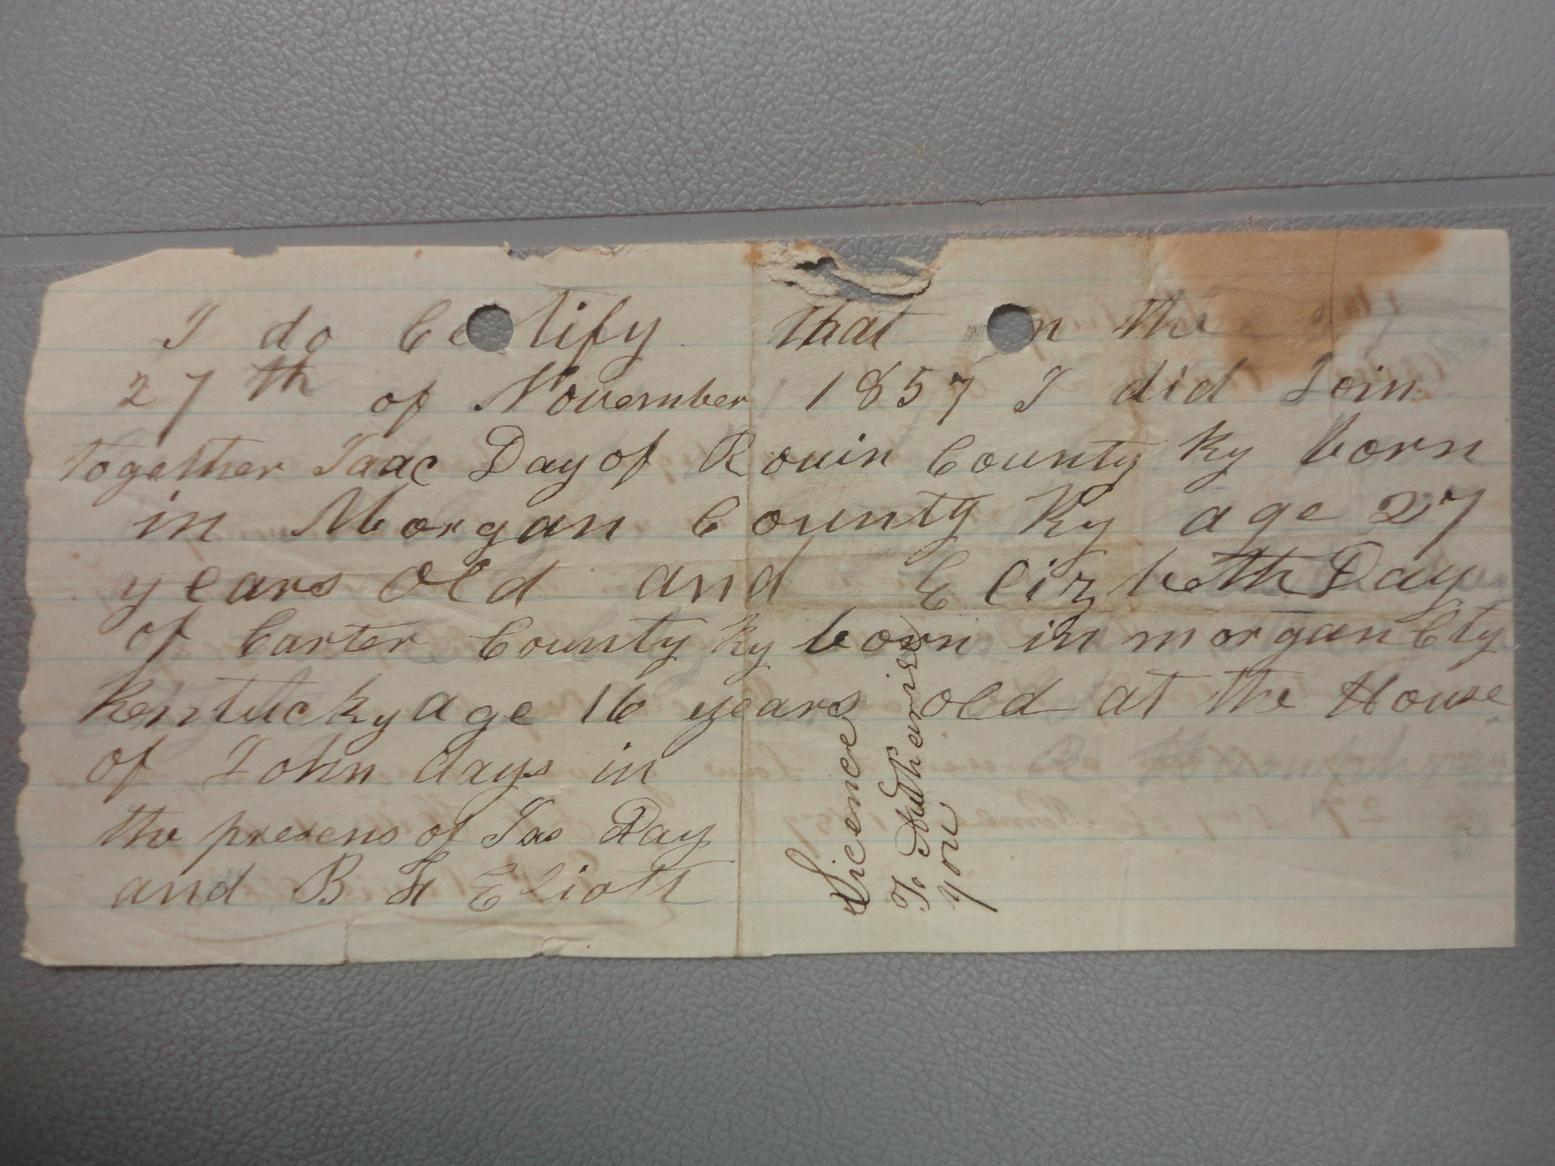 I do Ce tify that n the
27th of November 1857 I did Join
together Isaac Day of Rouin County Ky born
in Morgan County Ky age 27
years old and Elizbeth Day
of Carter County Ky born in morgan Cty
Kentucky age 16 years old at the House
of John days in
the presens of Jas Day
and B H Eliott
Sicence
To Autherise
you